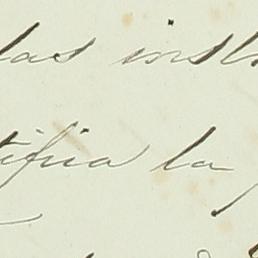 las inst
tifica la